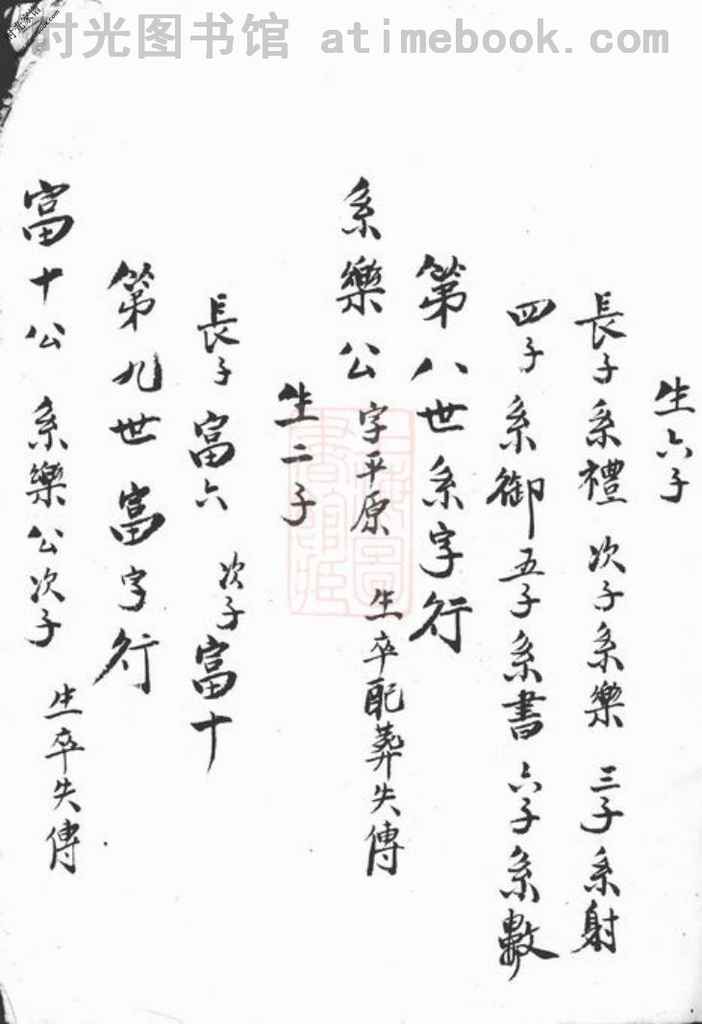 时光图书馆 atimebook.com
生六子
長子系禮 次子系樂 三子系射
四子系御 五子系書 六子系數
第八世系字行
系樂公 字平原 生卒配葬失傳
生二子
長子富六 次子富十
第九世富字行
富十公 系樂公次子 生卒失傳